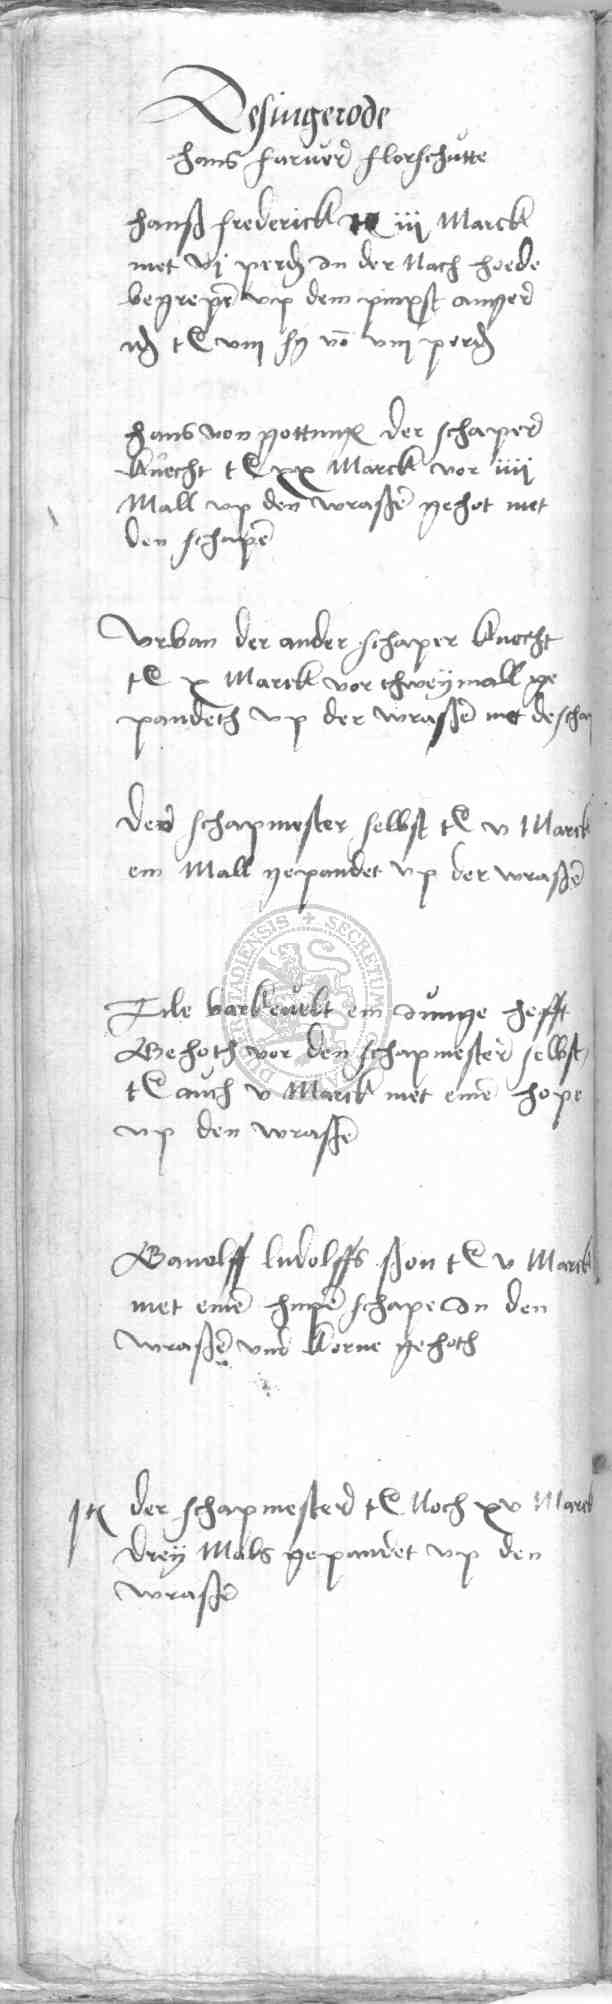 Desingerode
hans furuer florschutte
hanß frederick tℓ iij Marck
met vj perd in der Nach hoede
begrepē vp dem pinxst anger
id tℓ viij sz vō viij perd
hans von gotting der schaper
knecht tℓ xx Marck vor iiij
Mall vp den wraßē gehot met
den schapē
Vrban der ander schaper knecht
tℓ x Marck vor thweymall ge
pandeth vp der wraßē met de schap
Der schapmester selbst tℓ v Marck
ein Mall gepandet vp der wraßē
Tile barkeuelt ein Junge hefft
Gehoth vor den schapmester selbst
tℓ auch v Marck met eine hope
vp den wraßē
ludolffs ßon tℓ v Marck
met eine schape in den
wraßē vnd korne gehoth
It der schapmester tℓ Noch xv Marck
drey Mals gepandet vp den
wraßē
SECRETUM